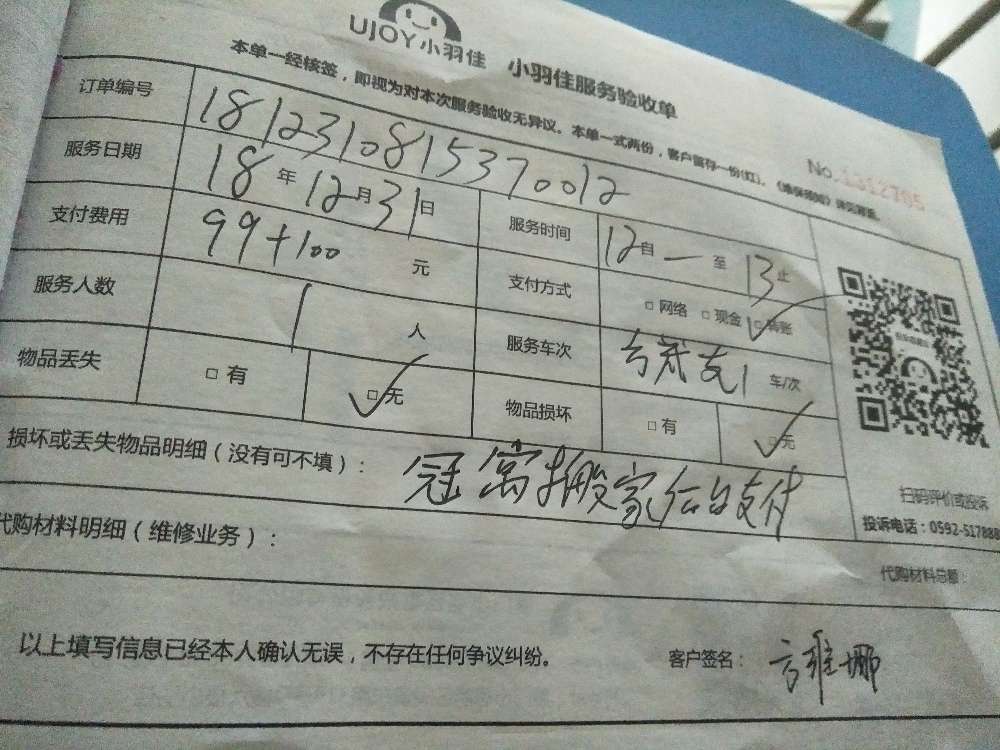 UJOY小羽佳 小羽佳服务验收单
本单一经核签，即视为对本次服务验收无异议。本单一式两份，客户留存一份(红)。《维保须知》详见背面。
No.1312705
订单编号 1812310815370012
服务日期 18年12月31日 服务时间 12自一至13止
支付费用 99+100 元 支付方式 □网络 □现金 □转账
服务人数 1 人 服务车次 1 车/次
物品丢失 □有 □无 物品损坏 □有 □无
损坏或丢失物品明细（没有可不填）： 冠寓搬家后台支付
扫码评价或投诉
投诉电话：0592-517888
代购材料明细（维修业务）：
代购材料总额：
以上填写信息已经本人确认无误，不存在任何争议纠纷。 客户签名： 方雅娜